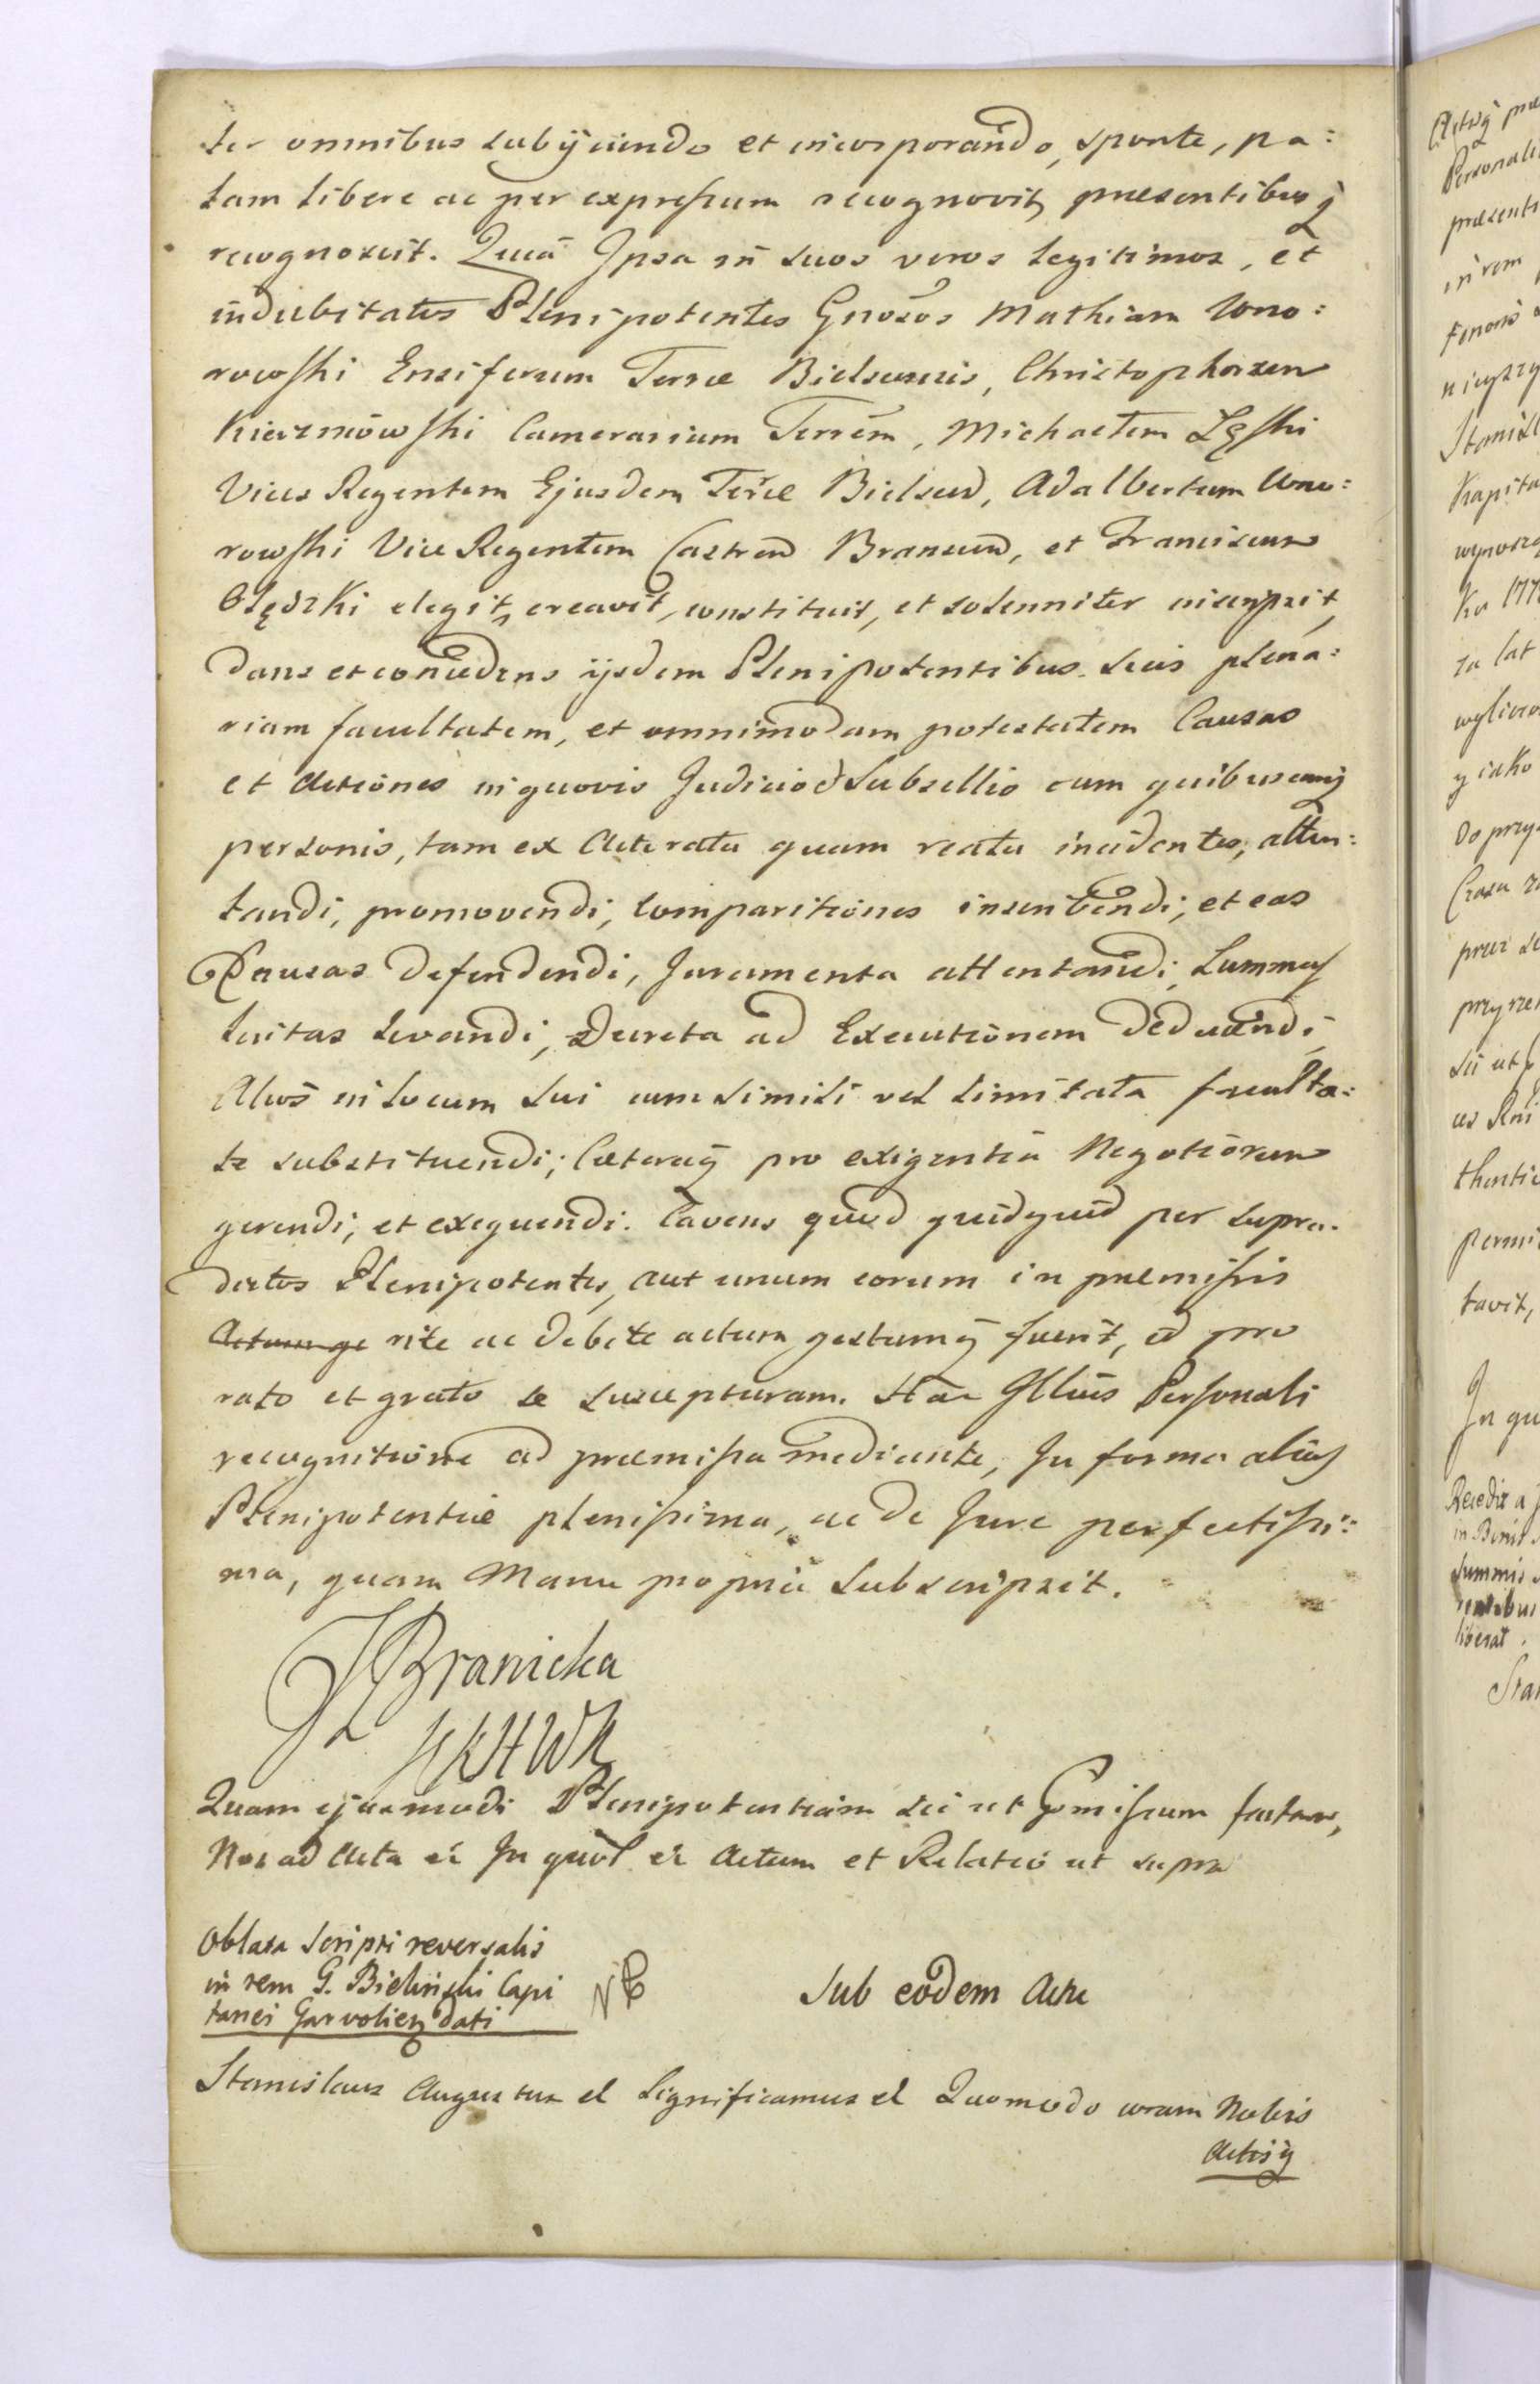 ter omnibus subijciendo et incorporando, sponte, pa:
lam libere ac per expressum recognovit, praesentibusq
recognoscit. Quia Ipsa in suos veros legitimos, et
indubitatos Plenipotentes Gnosos Mathiam Wno:
rowski Ensiferum Terrae Bielscensis, Christophorum
Kierznowski Camerarium Terrem, Michaelem Łęski
Vices Regentem Ejusdem Terrae Bielscen, Adalbertum Wno:
rowski Vice Regentem Castren Branscen, et Franciscum
Olędzki elegit, creavit, constituit, et solenniter inscripsit,
dans et concedens ijsdem Plenipotentibus suis plena:
riam facultatem, et omnimodam potestatem Causas
et Actiones in quovis Judicio et Subsellio cum quibuscunq
personis, tam ex Actoratu quam reatu incidentes, atten:
tandi, promovendi, Comparitiones inscribendi, et eas
Causas defendendi, Juramenta attentandi, Summas
luitas levandi, Decreta ad Executionem deducendi,
Alios in locum sui cum simili vel limitata faculta:
te substituendi; Caeteraq pro exigentia Negotiorum
gerendi, et exequendi. Cavens quod quidquid per supra.
dictos Plenipotentes, aut unum eorum in praemissis
Actum ge rite ac debite actum gestumq fuerit, id pro
rato et grato se suscepturam. Hac Illius Personali
recognitione ad praemissa mediante, In forma alias
Plenipotentiae plenissima, ac de Jure perfectissi:
ma, quam Manu propria subscripsit.
Branicka
Quam ejusmodi Plenipotentiam sic ut praemissum factam,
Nos ad Acta et In quor et Actum et Relatio ut supra
Oblata Scripti reversalis
in rem G. Bielinski Capi
tanei Garvolien dati
NB
Sub eodem Actu
Stanislaus Augustus et Significamus et Quomodo coram Nobis
Actisq
Actisq
Personali
praesenti
in rem
Stanisl
Kapita
wynosz
za lat
y iako
Czasu
przez
przyrze
thentic
permi
tavit,
In qu
Recedit a
in Bonis
Summis
liberat.